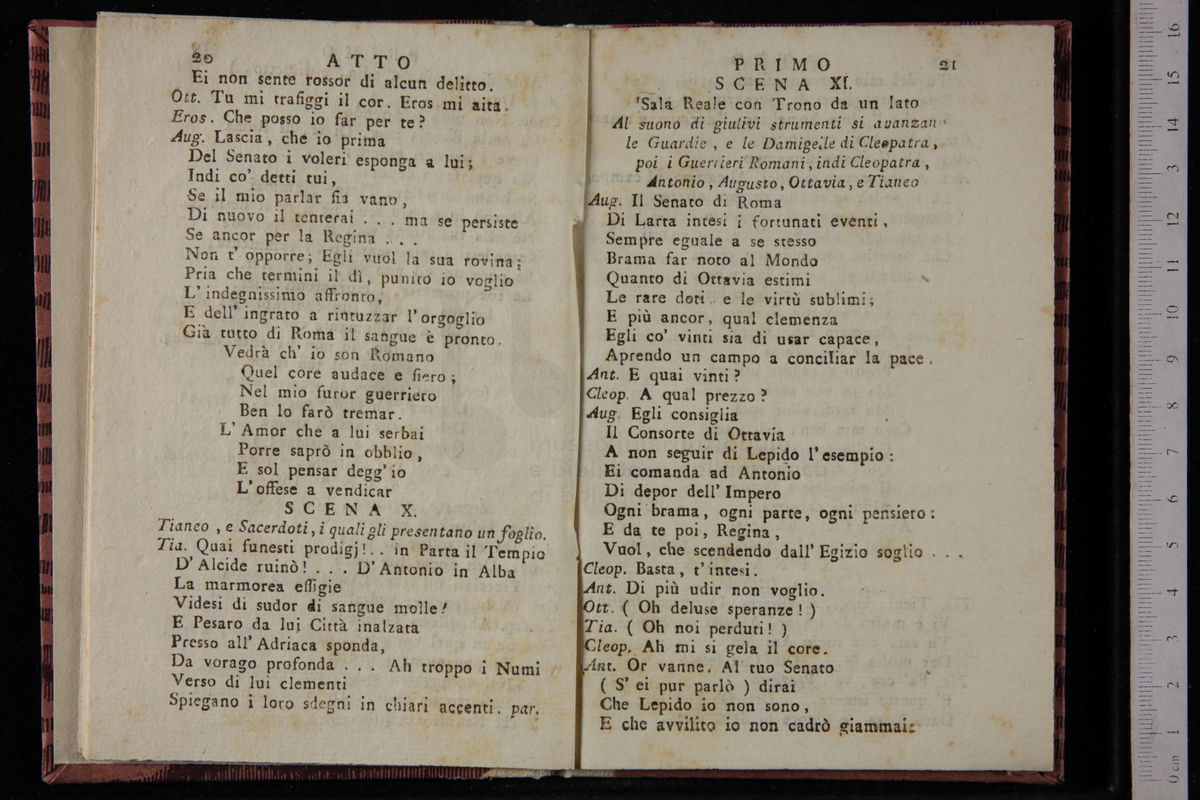 20 ATTO
Ei non sente rossor di alcun delitto.
Ott. Tu mi trafiggi il cor. Eros mi aita.
Eros. Che posso io far per te?
Aug. Lascia, che io prima
Del Senato i voleri esponga a lui;
Indi co' detti tui,
Se il mio parlar fia vano,
Di nuovo il tenterai . . . ma se persiste
Se ancor per la Regina . . .
Non t' opporre; Egli vuol la sua rovina;
Pria che termini il dì, punito io voglio
L' indegnissimo affronto,
E dell' ingrato a rintuzzar l'orgoglio
Già tutto di Roma il sangue è pronto.
Vedrà ch' io son Romano
Quel core audace e fiero;
Nel mio furor guerriero
Ben lo farò tremar.
L' Amor che a lui serbai
Porre saprò in obblio,
E sol pensar degg' io
L'offese a vendicar
SCENA X.
Tianeo, e Sacerdoti, i quali gli presentano un foglio.
Tia. Quai funesti prodigj!.. in Parta il Tempio
D'Alcide ruinò! . . . D'Antonio in Alba
La marmorea effigie
Videsi di sudor di sangue molle!
E Pesaro da lui Città inalzata
Presso all' Adriaca sponda,
Da vorago profonda . . . Ah troppo i Numi
Verso di lui clementi
Spiegano i loro sdegni in chiari accenti. par.
PRIMO 21
SCENA XI.
Sala Reale con Trono da un lato
Al suono di giulivi strumenti si avanzan
le Guardie, e le Damigelle di Cleopatra,
poi i Guerrieri Romani, indi Cleopatra,
Antonio, Augusto, Ottavia, e Tianeo
Aug. Il Senato di Roma
Di Larta intesi i fortunati eventi,
Sempre eguale a se stesso
Brama far noto al Mondo
Quanto di Ottavia estimi
Le rare doti e le virtù sublimi;
E più ancor, qual clemenza
Egli co' vinti sia di usar capace,
Aprendo un campo a conciliar la pace.
Ant. E quai vinti?
Cleop. A qual prezzo?
Aug. Egli consiglia
Il Consorte di Ottavia
A non seguir di Lepido l'esempio:
Ei comanda ad Antonio
Di depor dell' Impero
Ogni brama, ogni parte, ogni pensiero:
E da te poi, Regina,
Vuol, che scendendo dall' Egizio soglio . . .
Cleop. Basta, t'intesi.
Ant. Di più udir non voglio.
Ott. ( Oh deluse speranze! )
Tia. ( Oh noi perduti! )
Cleop. Ah mi si gela il core.
Ant. Or vanne. Al tuo Senato
( S' ei pur parlò ) dirai
Che Lepido io non sono,
E che avvilito io non cadrò giammai:
0 cm 1 2 3 4 5 6 7 8 9 10 11 12 13 14 15 16